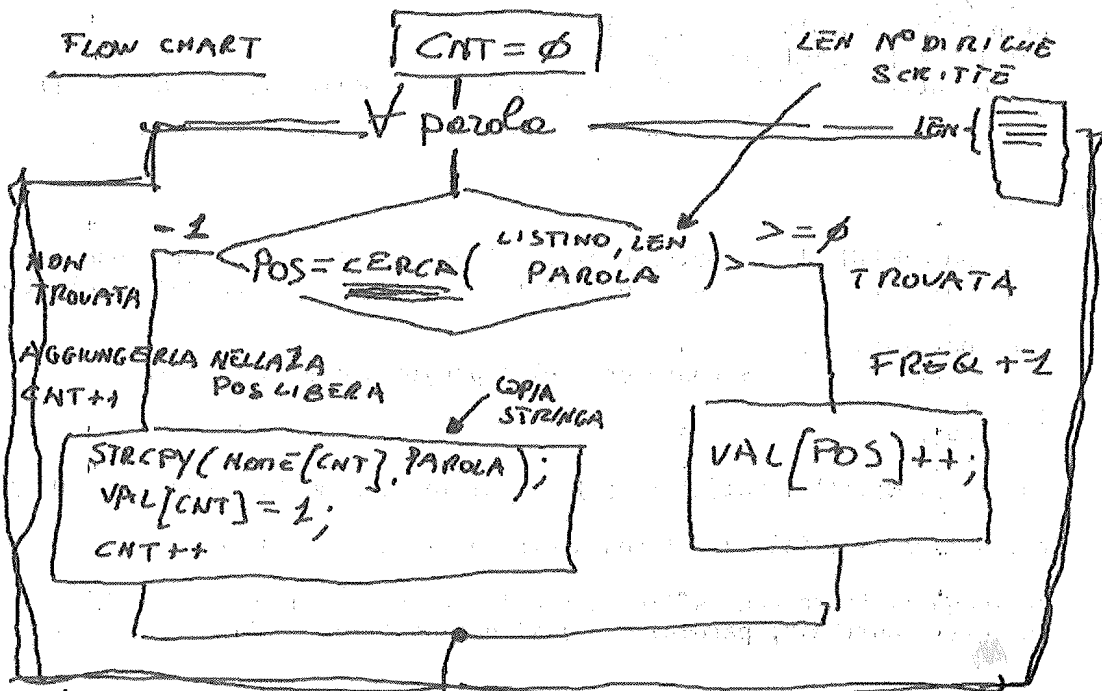 FLOW CHART
CNT = Ø
LEN N° DI RIGHE
SCRITTE
∀ parola
LEN {
-1
POS = CERCA ( LISTINO, LEN
PAROLA )
>= Ø
NON
TROVATA
TROVATA
AGGIUNGERLA NELLA 1A
POS LIBERA
CNT++
COPIA
STRINGA
FREQ +=1
STRCPY(NOME[CNT], PAROLA);
VAL[CNT] = 1;
CNT++
VAL[POS]++;